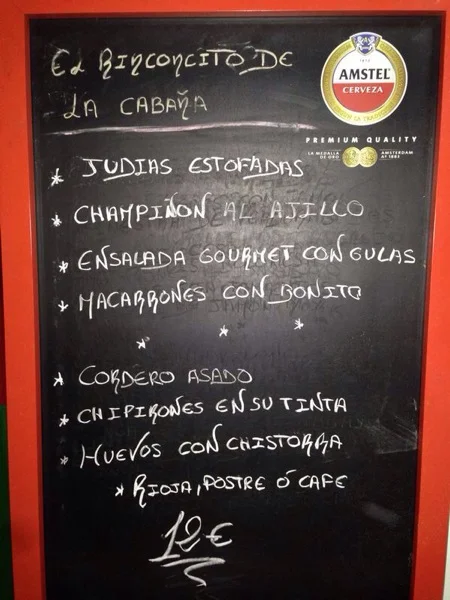 EL RINCONCITO DE
LA CABAÑA
1870
AMSTEL
CERVEZA
PREMIUM QUALITY
LA MEDALLA DE ORO
AMSTERDAM AÑ 1883
* JUDIAS ESTOFADAS
* CHAMPIÑON AL AJILLO
* ENSALADA GOURMET CON GULAS
* MACARRONES CON BONITO
* * *
* CORDERO ASADO
* CHIPIRONES EN SU TINTA
* HUEVOS CON CHISTORRA
* RIOJA, POSTRE Ó CAFE
12€